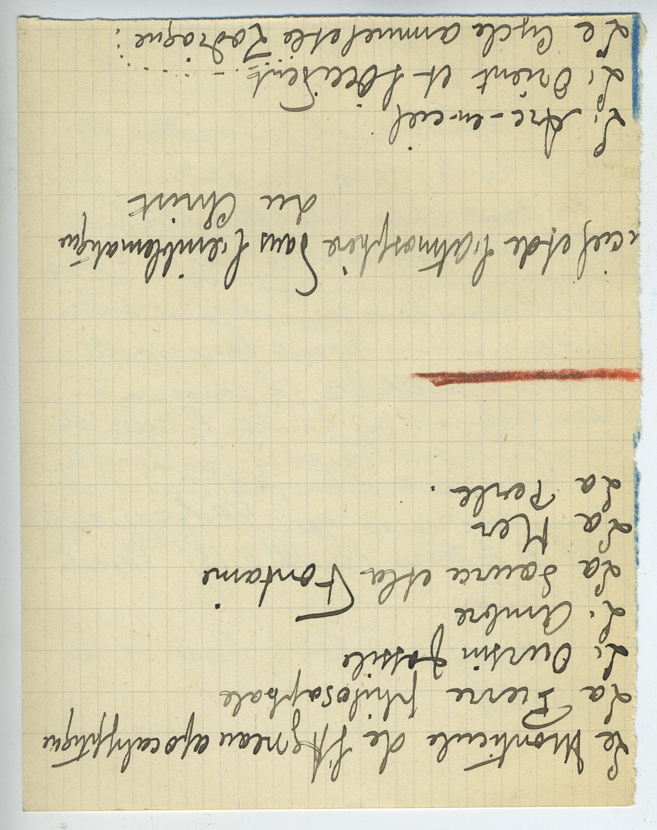 Le Monticule de l'Agneau apocalyptique
La Pierre philosophale
L'Oursin fossile
L'Ambre
La Source et la Fontaine
La Mer
La Perle.
ciel et de l'atmosphère dans l'emblématique
du Christ
L'Arc-en-ciel
L'Orient et l'Occident
Le Cycle annuel et le Zodiaque :